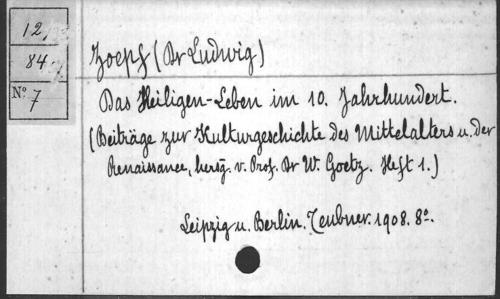 12,
84.
Nº 7
Zoepf (Dr Ludwig)
Das Heiligen-Leben im 10. Jahrhundert.
(Beiträge zur Kulturgeschichte des Mittelalters u. der
Renaissance, hersg. v. Prof. Dr W. Goetz. Heft 1.)
Leipzig u. Berlin. Teubner. 1908. 8º.